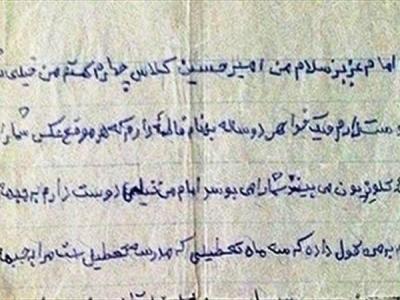 امام عزیز سلام من امیرحسین کلاس چهارم هستم من خیلی
دوستدارم ویک خواهر دوساله بنام فاطمه دارم که هر موقع عکس شمارا
تلویزیون می بیند شمارا می بوسد امام من خیلی دوست دارم به جبهه
به من قول داده که سه ماه تعطیلی که مدرسه تعطیل است مرا به جبهه